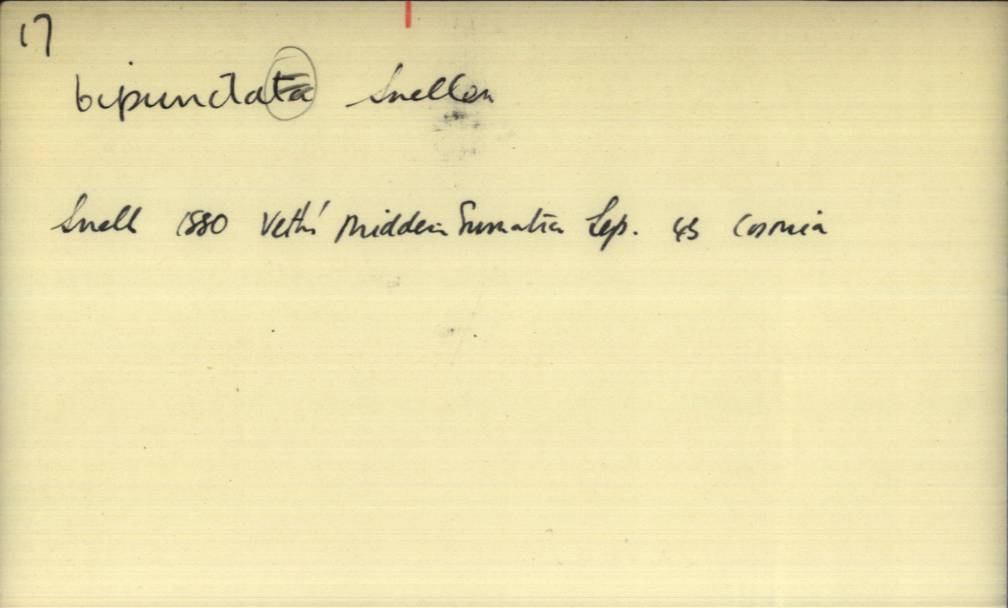 17
bipunctata Snellen
Snell 1880 Veth's Midden Sumatra Lep. 45 Cosmia